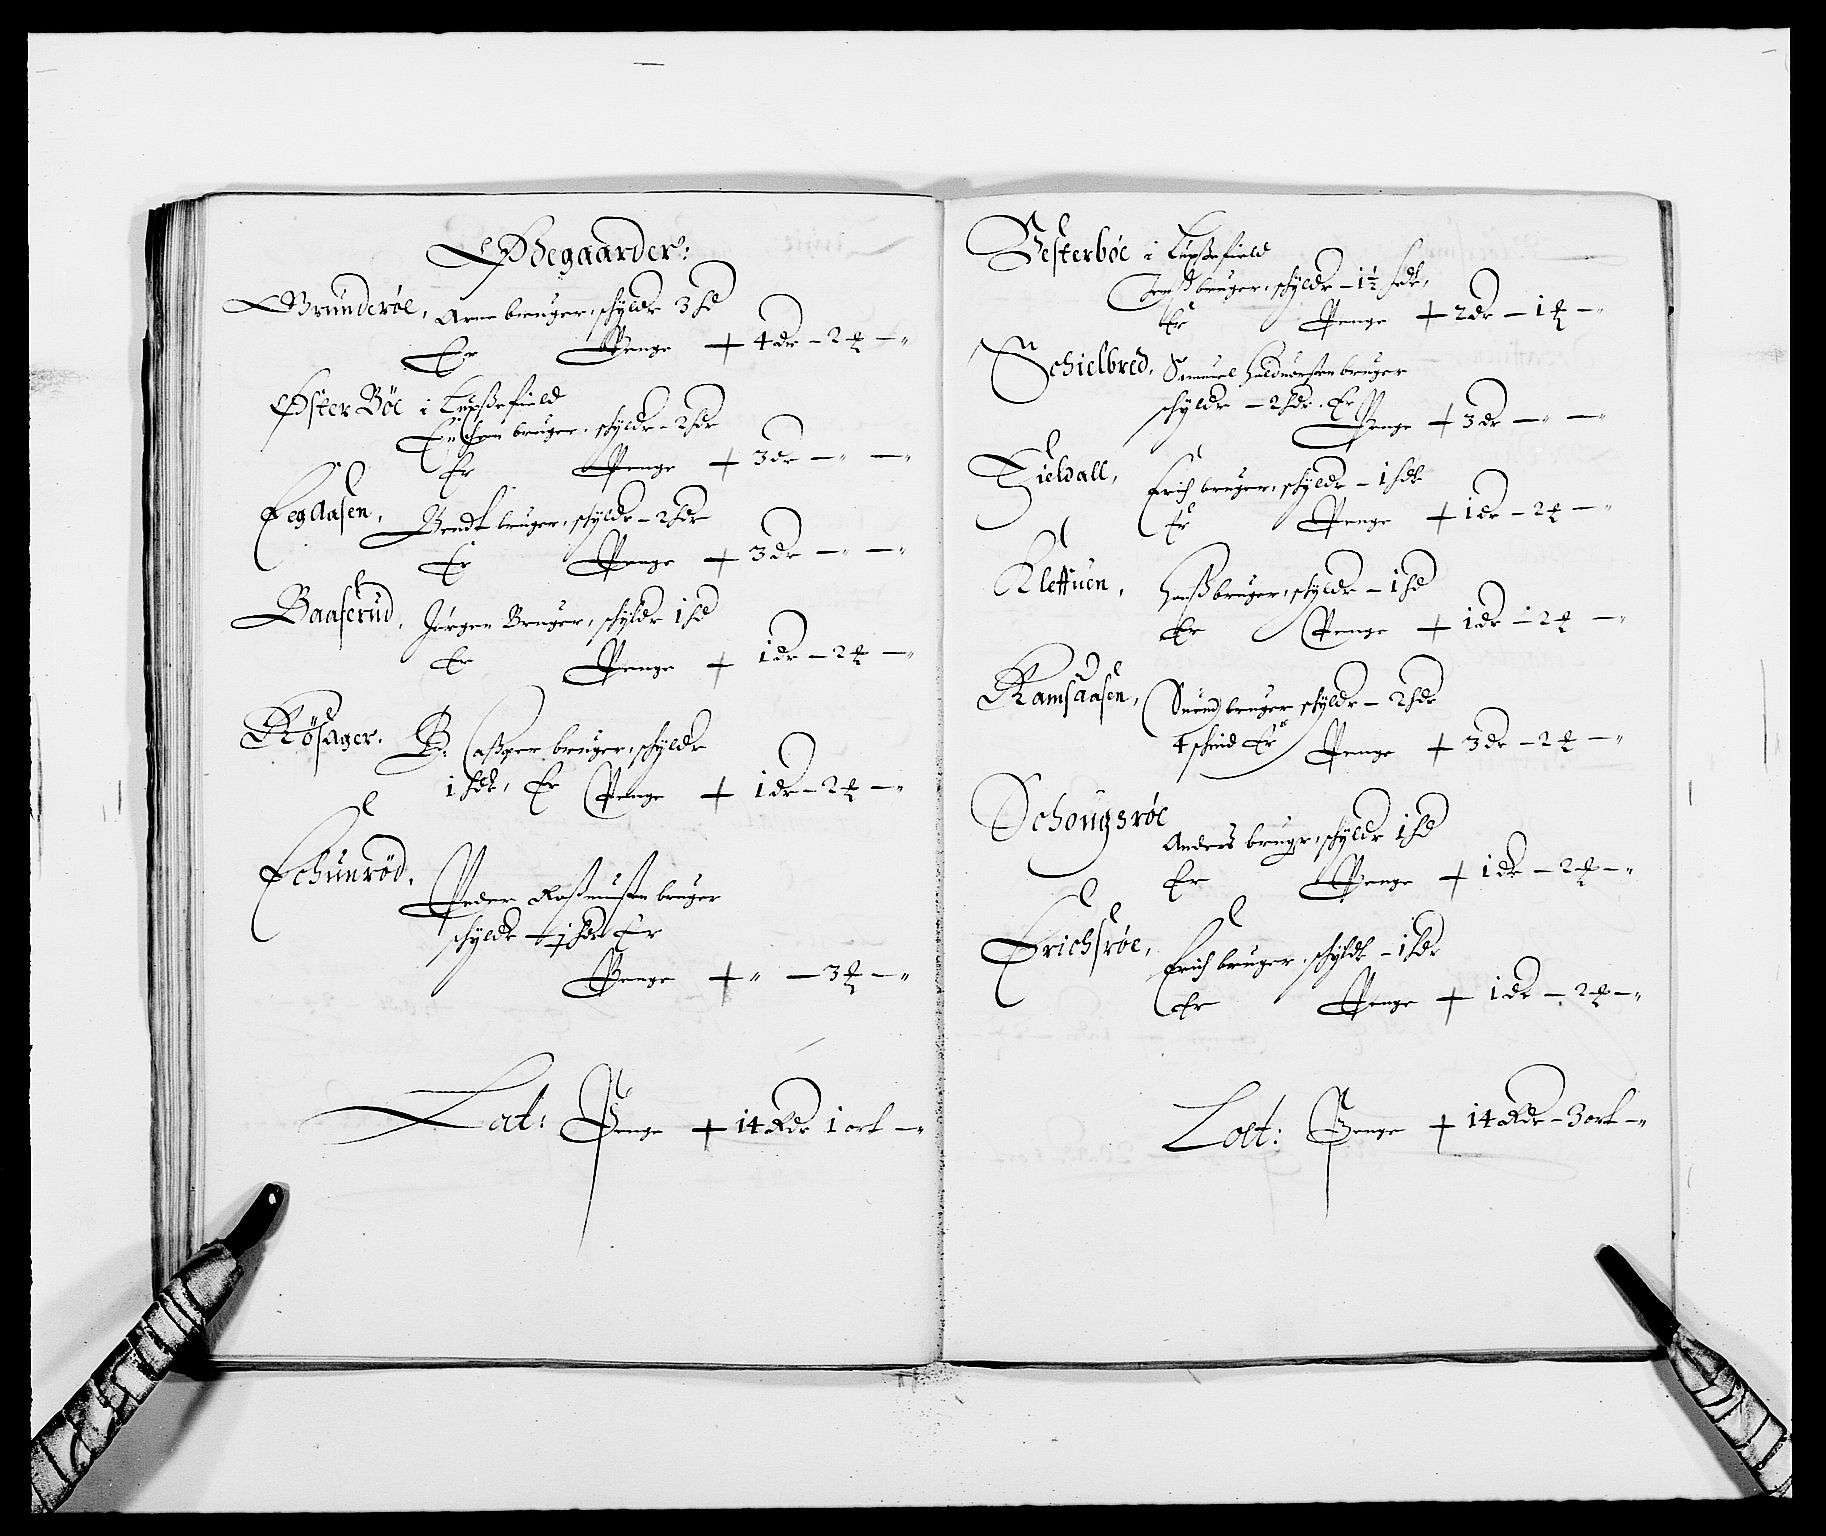 Ødegaarder:
Grunderöe, Arne bruger, schylder 3 hd
Er Penge + 4 dr – 2 ℔ – "
Øster Böe i Lupßefield
bruger, schylder – 2 hdr
Er Penge + 3 dr – " – "
Eegaasen, Bendt bruger, schylder – 2 hdr
Er Penge + 3 dr – " – "
Baaserud, Jörgen Bruger, schylder 1 hd
Er Penge + 1 dr – 2 ℔ – "
Rösager, B: Casper bruger, schylder
1 hdt, Er Penge + 1 dr – 2 ℔ – "
Echunröd, Peder Raßmußen bruger
schylder hdt Er
Penge + " – 3 ℔ – "
Lat: Penge + 14 Rdr 1 ort – "
Vesterböe i Lupßefield
Jenß bruger, schylder – 1½ hdt,
Er Penge + 2 dr – 1 ℔ – "
Schielbred, Samuel Haldvorsen bruger
schylder – 2 hdr. Er
Penge + 3 dr – " – "
Gieldall, Erich bruger, schylder – 1 hdt
Er Penge + 1 dr – 2 ℔ – "
Klettuen, Hanß bruger, schylder – 1 hd
Er Penge + 1 dr – 2 ℔ – "
Ramsaasen, Suend bruger schylder – 2 hdr
4 schind Er Penge + 3 dr – 2 ℔ – "
Schougsröe
Anders bruger, schylder 1 hd
Er Penge + 1 dr – 2 ℔ – "
Erichsröe, Erich bruger, schylder – 1 hdr
Er Penge + 1 dr – 2 ℔ – "
Lat: Penge + 14 Rdr – 3 ort – "